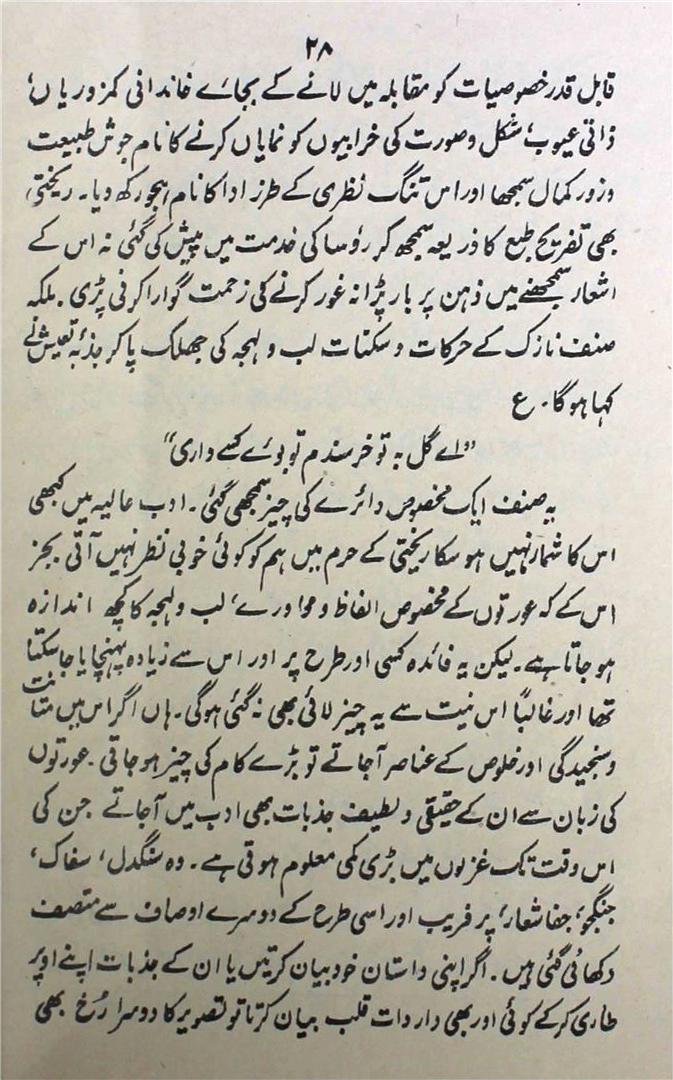 ۲۸
قابل قدر خصوصیات کو مقابلہ میں لانے کے بجائے خاندانی کمزوریاں،
ذاتی عیوب شکل و صورت کی خرابیوں کو نمایاں کرنے کا نام جوش طبیعت
و زور کمال سمجھا اور اس تنگ نظری کے طرز ادا کا نام ہجو رکھ دیا۔ ریختی
بھی تفریح طبع کا ذریعہ سمجھ کر رؤسا کی خدمت میں پیش کی گئی نہ اس کے
اشعار سمجھنے میں ذہن پر بار پڑا نہ غور کرنے کی زحمت گوارا کرنی پڑی۔ بلکہ
صنف نازک کے حرکات و سکنات لب و لہجہ کی جھلک پا کر جذبۂ تعیش نے
کہا ہوگا۔ ع
"اے گل بہ تو خرسندم تو بوئے کسے داری"
یہ صنف ایک مخصوص دائرے کی چیز سمجھی گئی۔ ادب عالیہ میں کبھی
اس کا شمار نہیں ہو سکا ریختی کے حرم میں ہم کو کوئی خوبی نظر نہیں آتی بجز
اس کے کہ عورتوں کے مخصوص الفاظ و محاورے، لب و لہجہ کا کچھ اندازہ
ہو جاتا ہے۔ لیکن یہ فائدہ کسی اور طرح پر اور اس سے زیادہ پہنچایا جا سکتا
تھا اور غالباً اس نیت سے یہ چیز لائی بھی نہ گئی ہوگی۔ ہاں اگر اس میں متانت
و سنجیدگی اور خلوص کے عناصر آ جاتے تو بڑے کام کی چیز ہو جاتی۔ عورتوں
کی زبان سے ان کے حقیقی و لطیف جذبات بھی ادب میں آ جاتے جن کی
اس وقت تک غزلوں میں بڑی کمی معلوم ہوتی ہے۔ وہ سنگدل، سفاک،
جنگجو، جفا شعار، پر فریب اور اسی طرح کے دوسرے اوصاف سے متصف
دکھائی گئی ہیں۔ اگر اپنی داستان خود بیان کرتیں یا ان کے جذبات اپنے اوپر
طاری کرکے کوئی اور بھی واردات قلب بیان کرتا تو تصویر کا دوسرا رُخ بھی